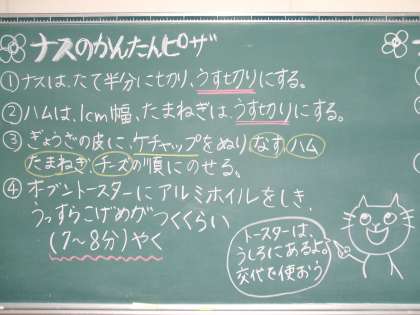 ナスのかんたんピザ
①ナスは、たて半分に切り、うす切りにする。
②ハムは、1cm幅、たまねぎは、うす切りにする。
③ぎょうざの皮に、ケチャップをぬり なす ハム
たまねぎ チーズの順にのせる。
④オブントースターにアルミホイルをしき、
うっすらこげめがつくくらい
(7〜8分)やく
トースターは、
うしろにあるよ。
交代で使おう